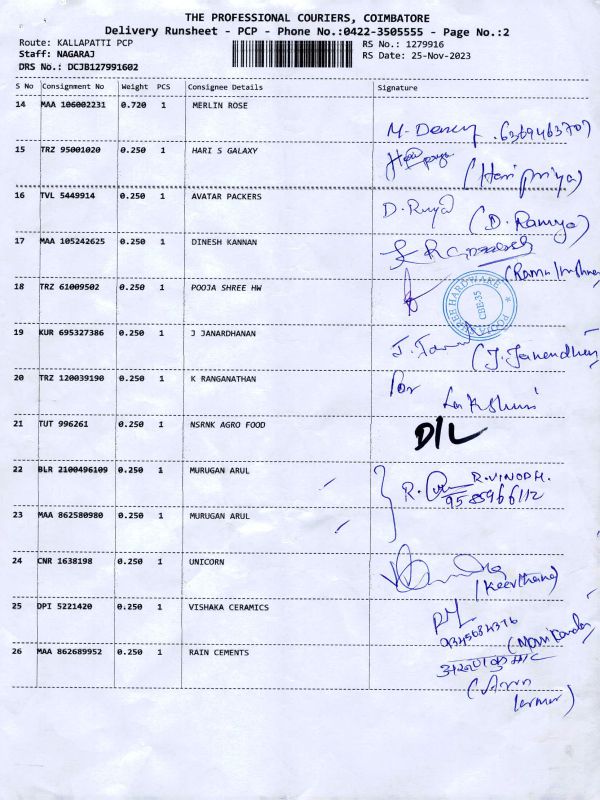 THE PROFESSIONAL COURIERS, COIMBATORE
Delivery Runsheet - PCP - Phone No.:0422-3505555 - Page No.:2
Route: KALLAPATTI PCP
RS No.: 1279916
Staff: NAGARAJ
RS Date: 25-Nov-2023
DRS No.: DCJB127991602
S No Consignment No Weight PCS Consignee Details Signature
14 MAA 106002231 0.720 1 MERLIN ROSE
15 TRZ 95001020 0.250 1 HARI S GALAXY
(Haripriya)
16 TVL 5449914 0.250 1 AVATAR PACKERS
(D. Ramya)
17 MAA 105242625 0.250 1 DINESH KANNAN
18 TRZ 61009502 0.250 1 POOJA SHREE HW
POOJA SHREE HARDWARE
CBE-35
19 KUR 695327386 0.250 1 J JANARDHANAN
20 TRZ 120039190 0.250 1 K RANGANATHAN
for
Lakshmi
21 TUT 996261 0.250 1 NSRNK AGRO FOOD
D/L
22 BLR 2100496109 0.250 1 MURUGAN ARUL
R.VINODH.
9585966112
23 MAA 862580980 0.250 1 MURUGAN ARUL
24 CNR 1638198 0.250 1 UNICORN
(Keerthana)
25 DPI 5221420 0.250 1 VISHAKA CERAMICS
26 MAA 862689952 0.250 1 RAIN CEMENTS